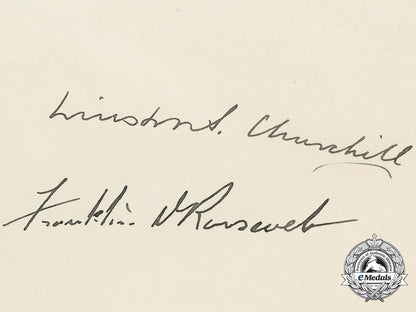 Winston S. Churchill
Franklin D Roosevelt
eMedals